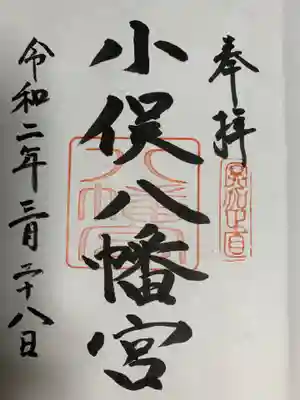 奉拝
小俣八幡宮
八幡宮
令和二年三月二十八日